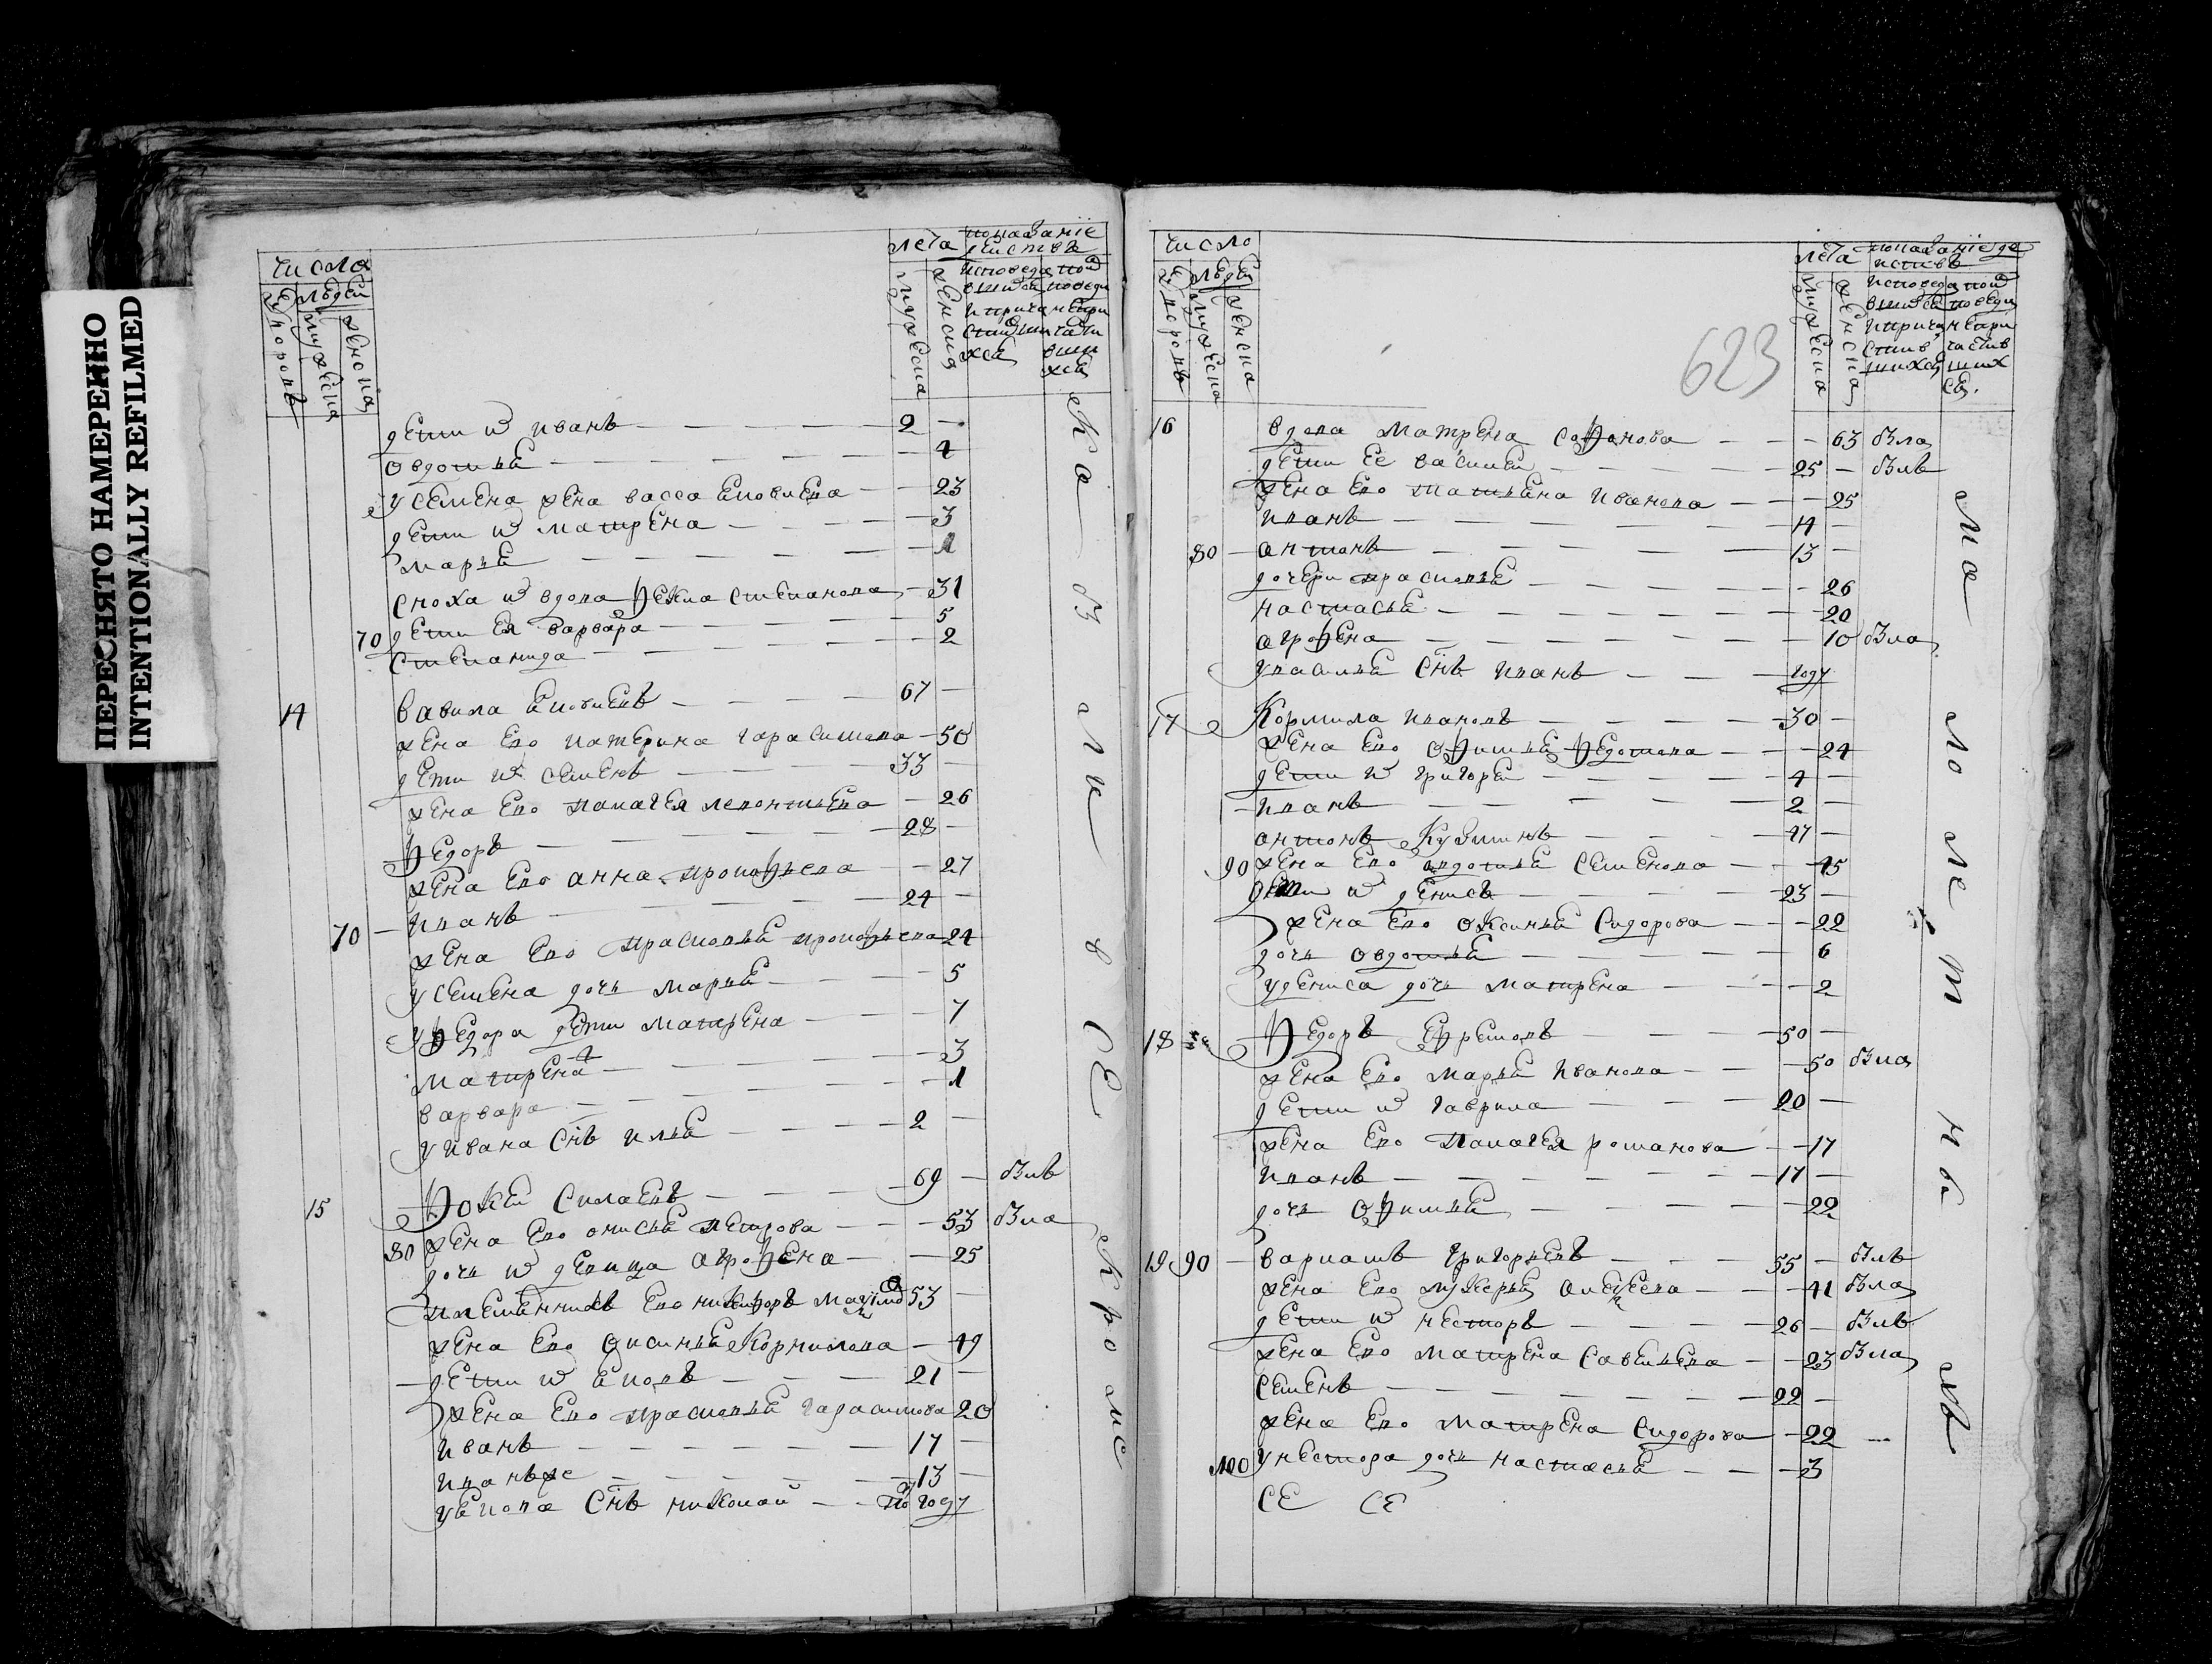 ПЕРЕСНЯТО НАМЕРЕННО
INTENTIONALLY REFILMED
Число
людей
дворовъ
мужеска
женска
лета
показаніе действъ
мужеска
женска
исповедавшихся и причастившихся
дети их иванъ — 2 —
овдотья — 4
у семена жена васса ековлева — 23
дети их матрена — 3
марья — 1
сноха их вдова Фекла степанова — 31
70 дети ея варвара — 5
степанида — 2
14 Вавила ековлевъ — 67 —
жена ево катерина гарасимова — 50
дети их семенъ — 33 —
жена ево палагея леонтьева — 26
Федоръ — 28 —
жена ево анна прокофьева — 27
70 — иванъ — 24 —
жена ево прасковья прокофьева 24
у семена дочь марья — 5
у Федора дети матрена — 7
матрена — 3
варвара — 1
у ивана снъ илья — 2 —
15 Фокей силаевъ — 69 — былъ
80 жена ево анисья петрова — 53 была
дочь их девица агрофена — 25
племянникъ ево никифоръ 53 —
жена ево оксинья Корнилова — 49
— дети их ековъ — 21 —
жена ево прасковья гарасимова 20
иванъ — 17 —
иванъже — 13 —
у екова снъ николай — по году
ка за ли в се Кроме
623
Число
людей
дворовъ
мужеска
женска
лета
показаніе действъ
мужеска
женска
16 вдова матрена сафонова — 63 была
дети ее василей — 25 — былъ
жена ево матрена иванова — 25
иванъ — 14 —
80 — антонъ — 13 —
дочери прасковья — 26
настасья — 20
агрофена — 10 была
у василья снъ иванъ — году
17 Кормила ивановъ — 30 —
жена ево офимья Федотова — 24
дети их григорей — 4 —
— иванъ — 2 —
антонъ Кузминъ — 47 —
90 жена ево авдотья семенова — 45
дети их денисъ — 23 —
жена ево оксинья сидорова — 22
дочь овдотья — 6
у дениса дочь матрена — 2
18 Федоръ Ефремовъ — 50 —
жена ево марья иванова — 50 была
дети их гаврила — 20 —
жена ево палагея романова — 17
иванъ — 17 —
дочь офимья — 22
19 90 — варламъ григорьевъ — 55 — былъ
жена ево лукерья — 41 была
дети их несторъ — 26 — былъ
жена ево матрена савельева — 23 была
семенъ — 22 —
жена ево матрена сидорова — 22 —
100 у нестора дочь настасья — 3
СЕ СЕ
ма ло ле т на хъ